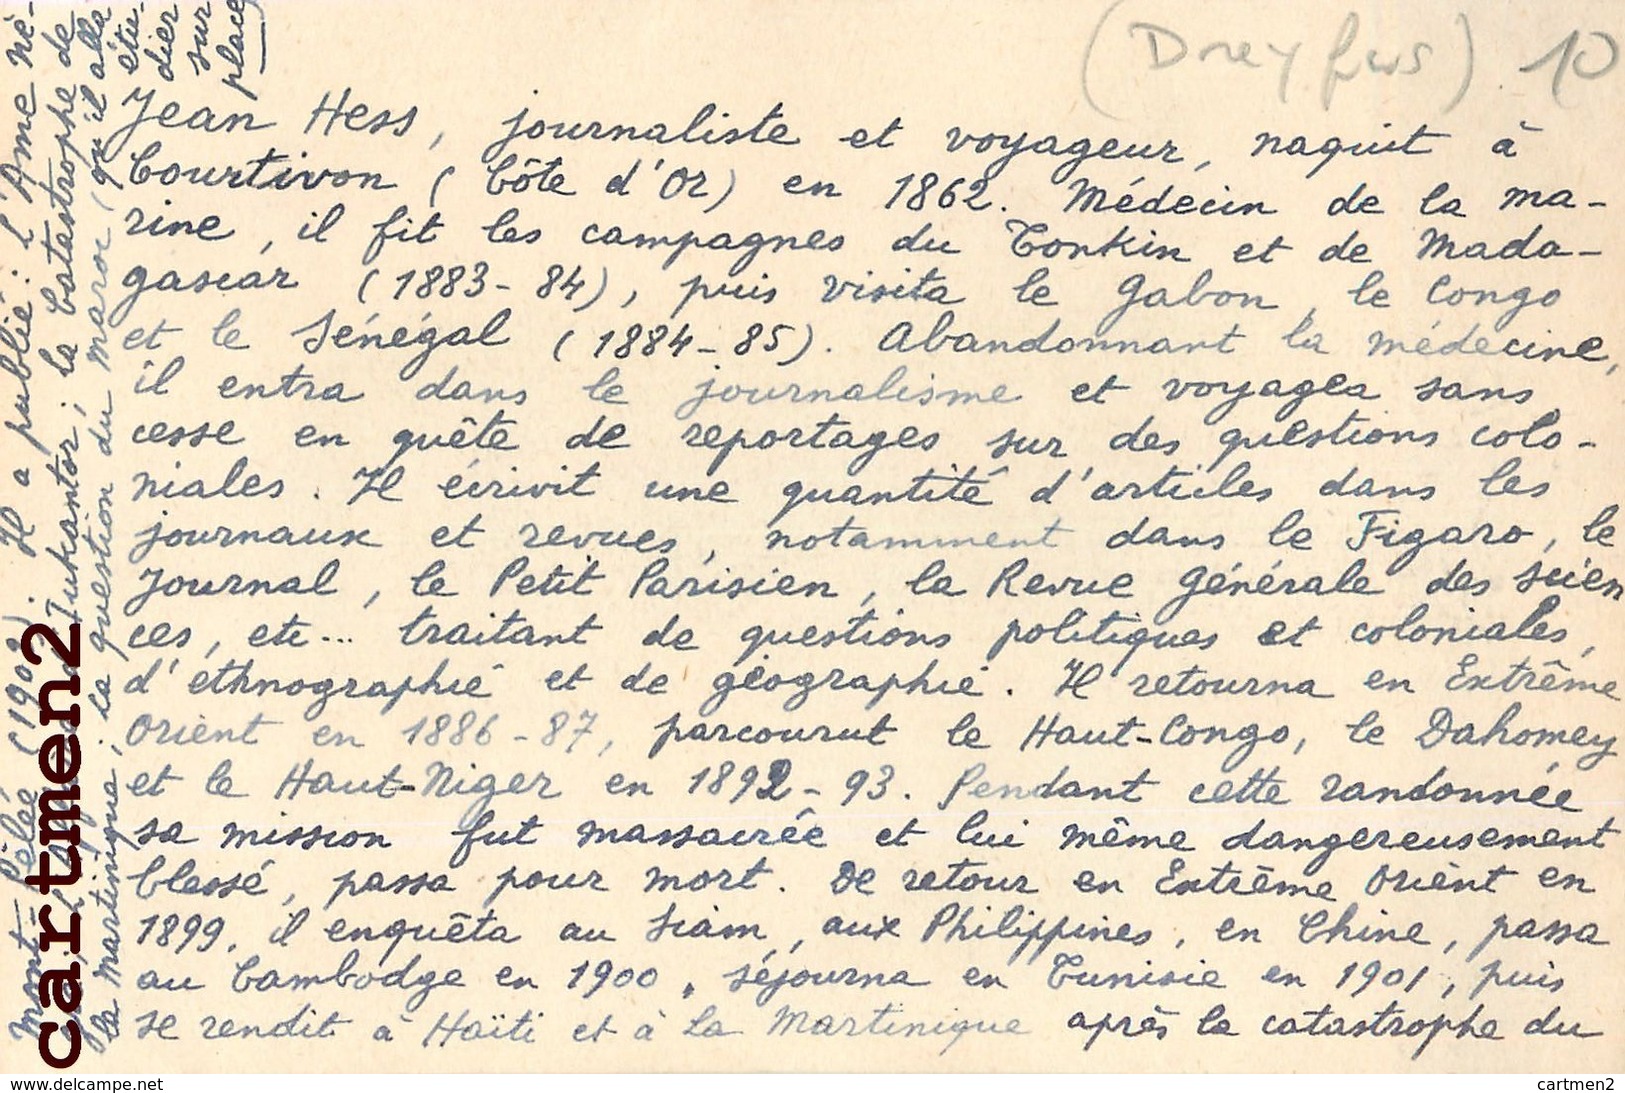 (Dreyfus) 10
Jean Hess, journaliste et voyageur, naquit à
Courtivon (Côte d'Or) en 1862. Médecin de la ma-
rine, il fit les campagnes du Tonkin et de Mada-
gascar (1883-84), puis visita le Gabon, le Congo
et le Sénégal (1884-85). Abandonnant la médecine,
il entra dans le journalisme et voyagea sans
cesse en quête de reportages sur des questions colo-
niales. Il écrivit une quantité d'articles dans les
journaux et revues, notamment dans le Figaro, le
Journal, le Petit Parisien, la Revue Générale des Scien
ces, etc... traitant de questions politiques et coloniales,
d'ethnographie et de géographie. Il retourna en Extrême
Orient en 1886-87, parcourut le Haut-Congo, le Dahomey
et le Haut-Niger en 1892-93. Pendant cette randonnée
sa mission fut massacrée et lui même dangereusement
blessé, passa pour mort. De retour en Extrême Orient en
1899, il enquêta au Siam, aux Philippines, en Chine, passa
au Cambodge en 1900, séjourna en Tunisie en 1901, puis
se rendit à Haïti et à La Martinique après la catastrophe du
Mont-Pelée (1902). Il a publié: l'Ame nè-
Iukanthor; la Catastrophe de
la Martinique; la question du Maroc (qu'il alla
étu-
dier
sur
place)
cartmen2
www.delcampe.net
cartmen2